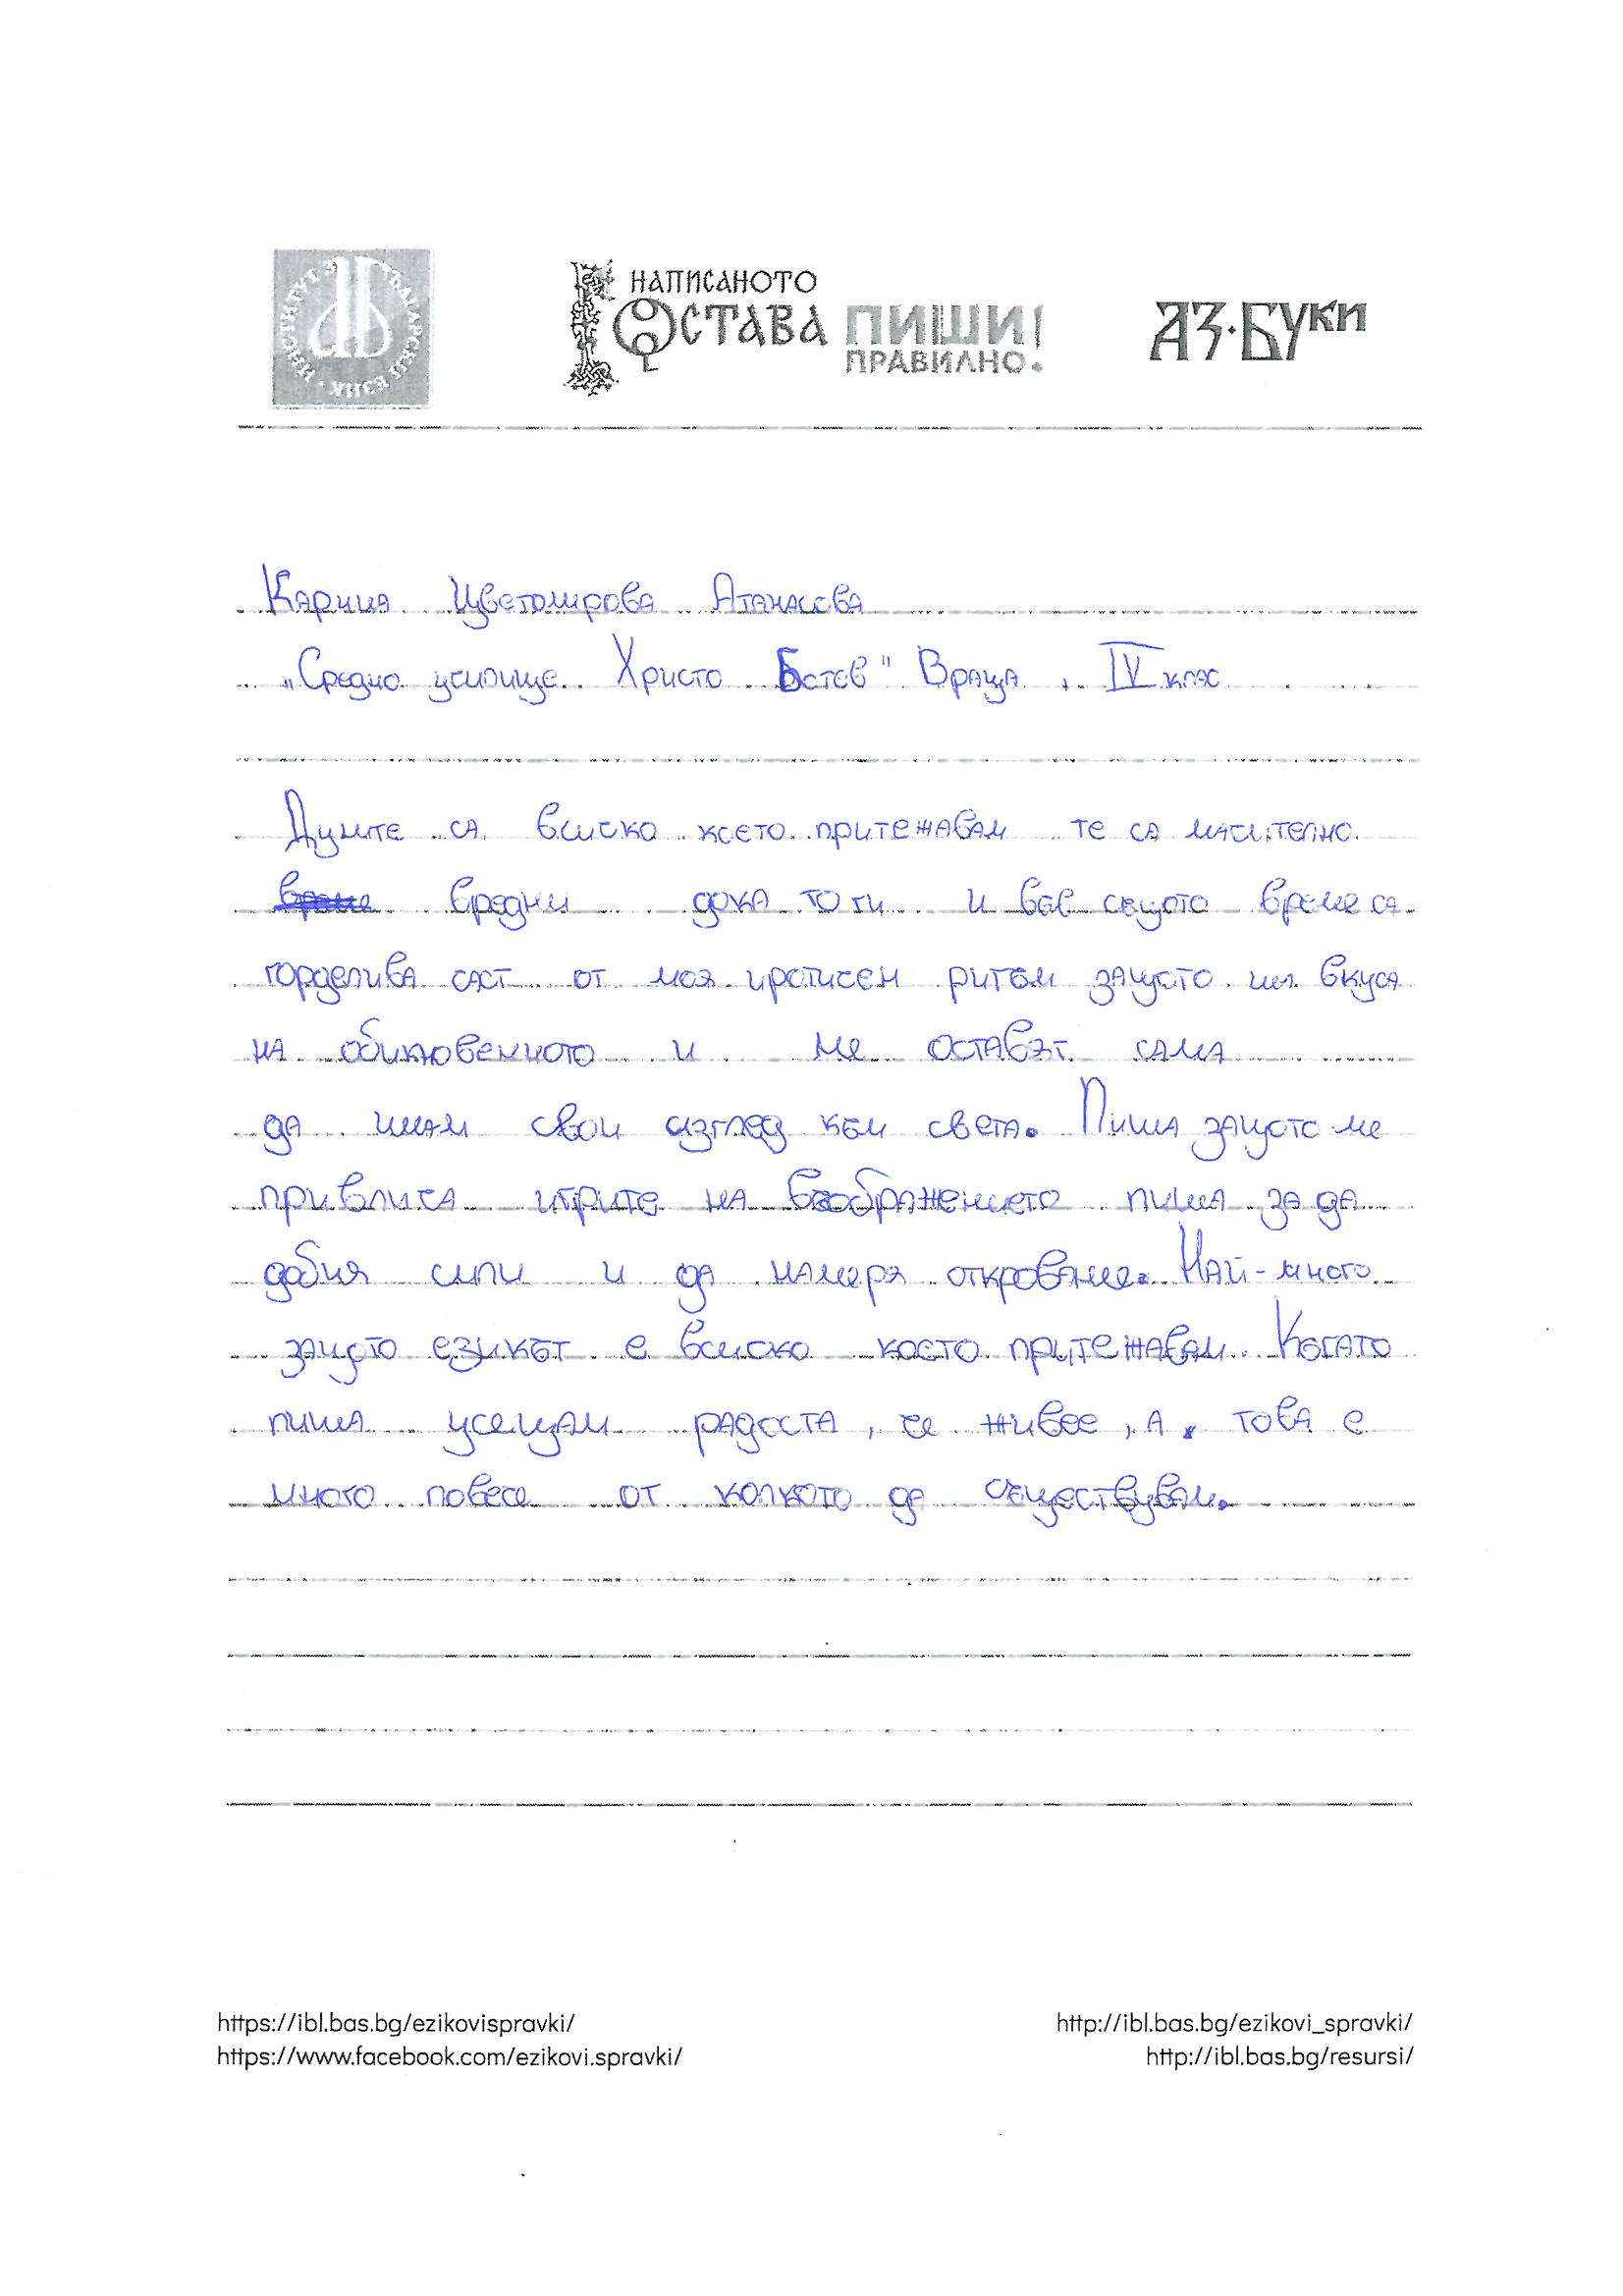 ИНСТИТУТ ЗА БЪЛГАРСКИ ЕЗИК
НАПИСАНОТО
ОСТАВА ПИШИ!
ПРАВИЛНО.
АЗ·БУКИ
Карина Цветомирова Атанасова
„Средно училище Христо Ботев" Враца, IV клас
Думите са всичко което притежавам те са мъчително
вредни дока то ги и във същото време са
горделива част от моя протисен ритъм защото им вкуса
на обикновенното и ме оставят сама
да имам свои изглед към света. Пиша защото ме
привлича игрите на въображението пиша за да
добия сили и да намеря открование. Най-много
защото езикът е всичко което притежавам. Когато
пиша усещам радоста, че живее, а, това е
много повече от колкото да съществувам.
https://ibl.bas.bg/ezikovispravki/
https://www.facebook.com/ezikovi.spravki/
http://ibl.bas.bg/ezikovi_spravki/
http://ibl.bas.bg/resursi/